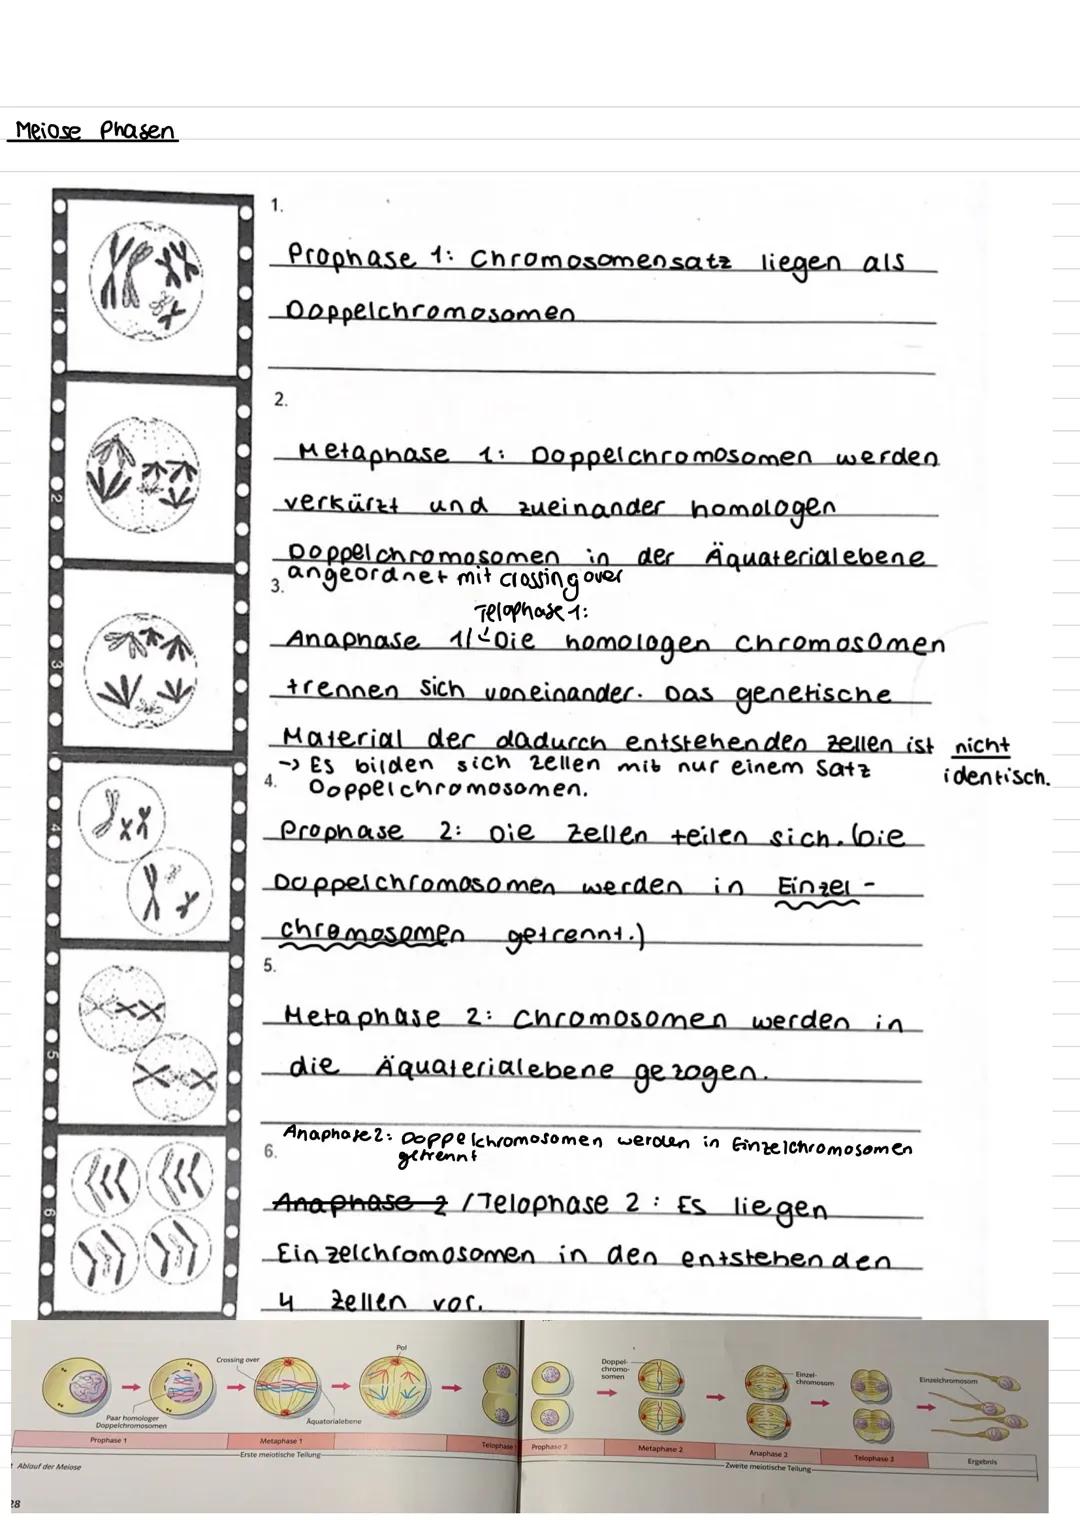 Meiose Phasen
1.
Prophase 1: Chromosomensatz liegen als
Doppelchromosomen
2.
Metaphase 1: Doppelchromosomen werden
verkürzt und zueinander homologen
Doppelchromosomen in der Äquaterialebene
angeordnet mit crossing over
3.
Telophase 1:
Anaphase 1/ Die homologen Chromosomen
trennen sich voneinander. Das genetische
Material der dadurch entstehenden Zellen ist nicht
identisch.
-> Es bilden sich Zellen mit nur einem Satz
Doppelchromosomen.
4.
Prophase 2: Die Zellen teilen sich. (Die
Doppelchromosomen werden in Einzel-
chromosomen getrennt.)
5.
Metaphase 2: Chromosomen werden in
die Äquaterialebene gezogen.
Anaphase 2: Doppelchromosomen werden in Einzelchromosomen
getrennt
6.
Anaphase 2 / Telophase 2: Es liegen
Einzelchromosomen in den entstehenden
4 Zellen vor.
1
2
3
4
5
6
Crossing over
Pol
Paar homologer
Doppelchromosomen
Äquatorialebene
Doppel-
chromo-
somen
Einzel-
chromosom
Einzelchromosom
Prophase 1
Metaphase 1
Telophase
Prophase 2
Metaphase 2
Anaphase 2
Telophase 2
Ergebnis
Erste meiotische Teilung
Zweite meiotische Teilung
Ablauf der Meiose
28